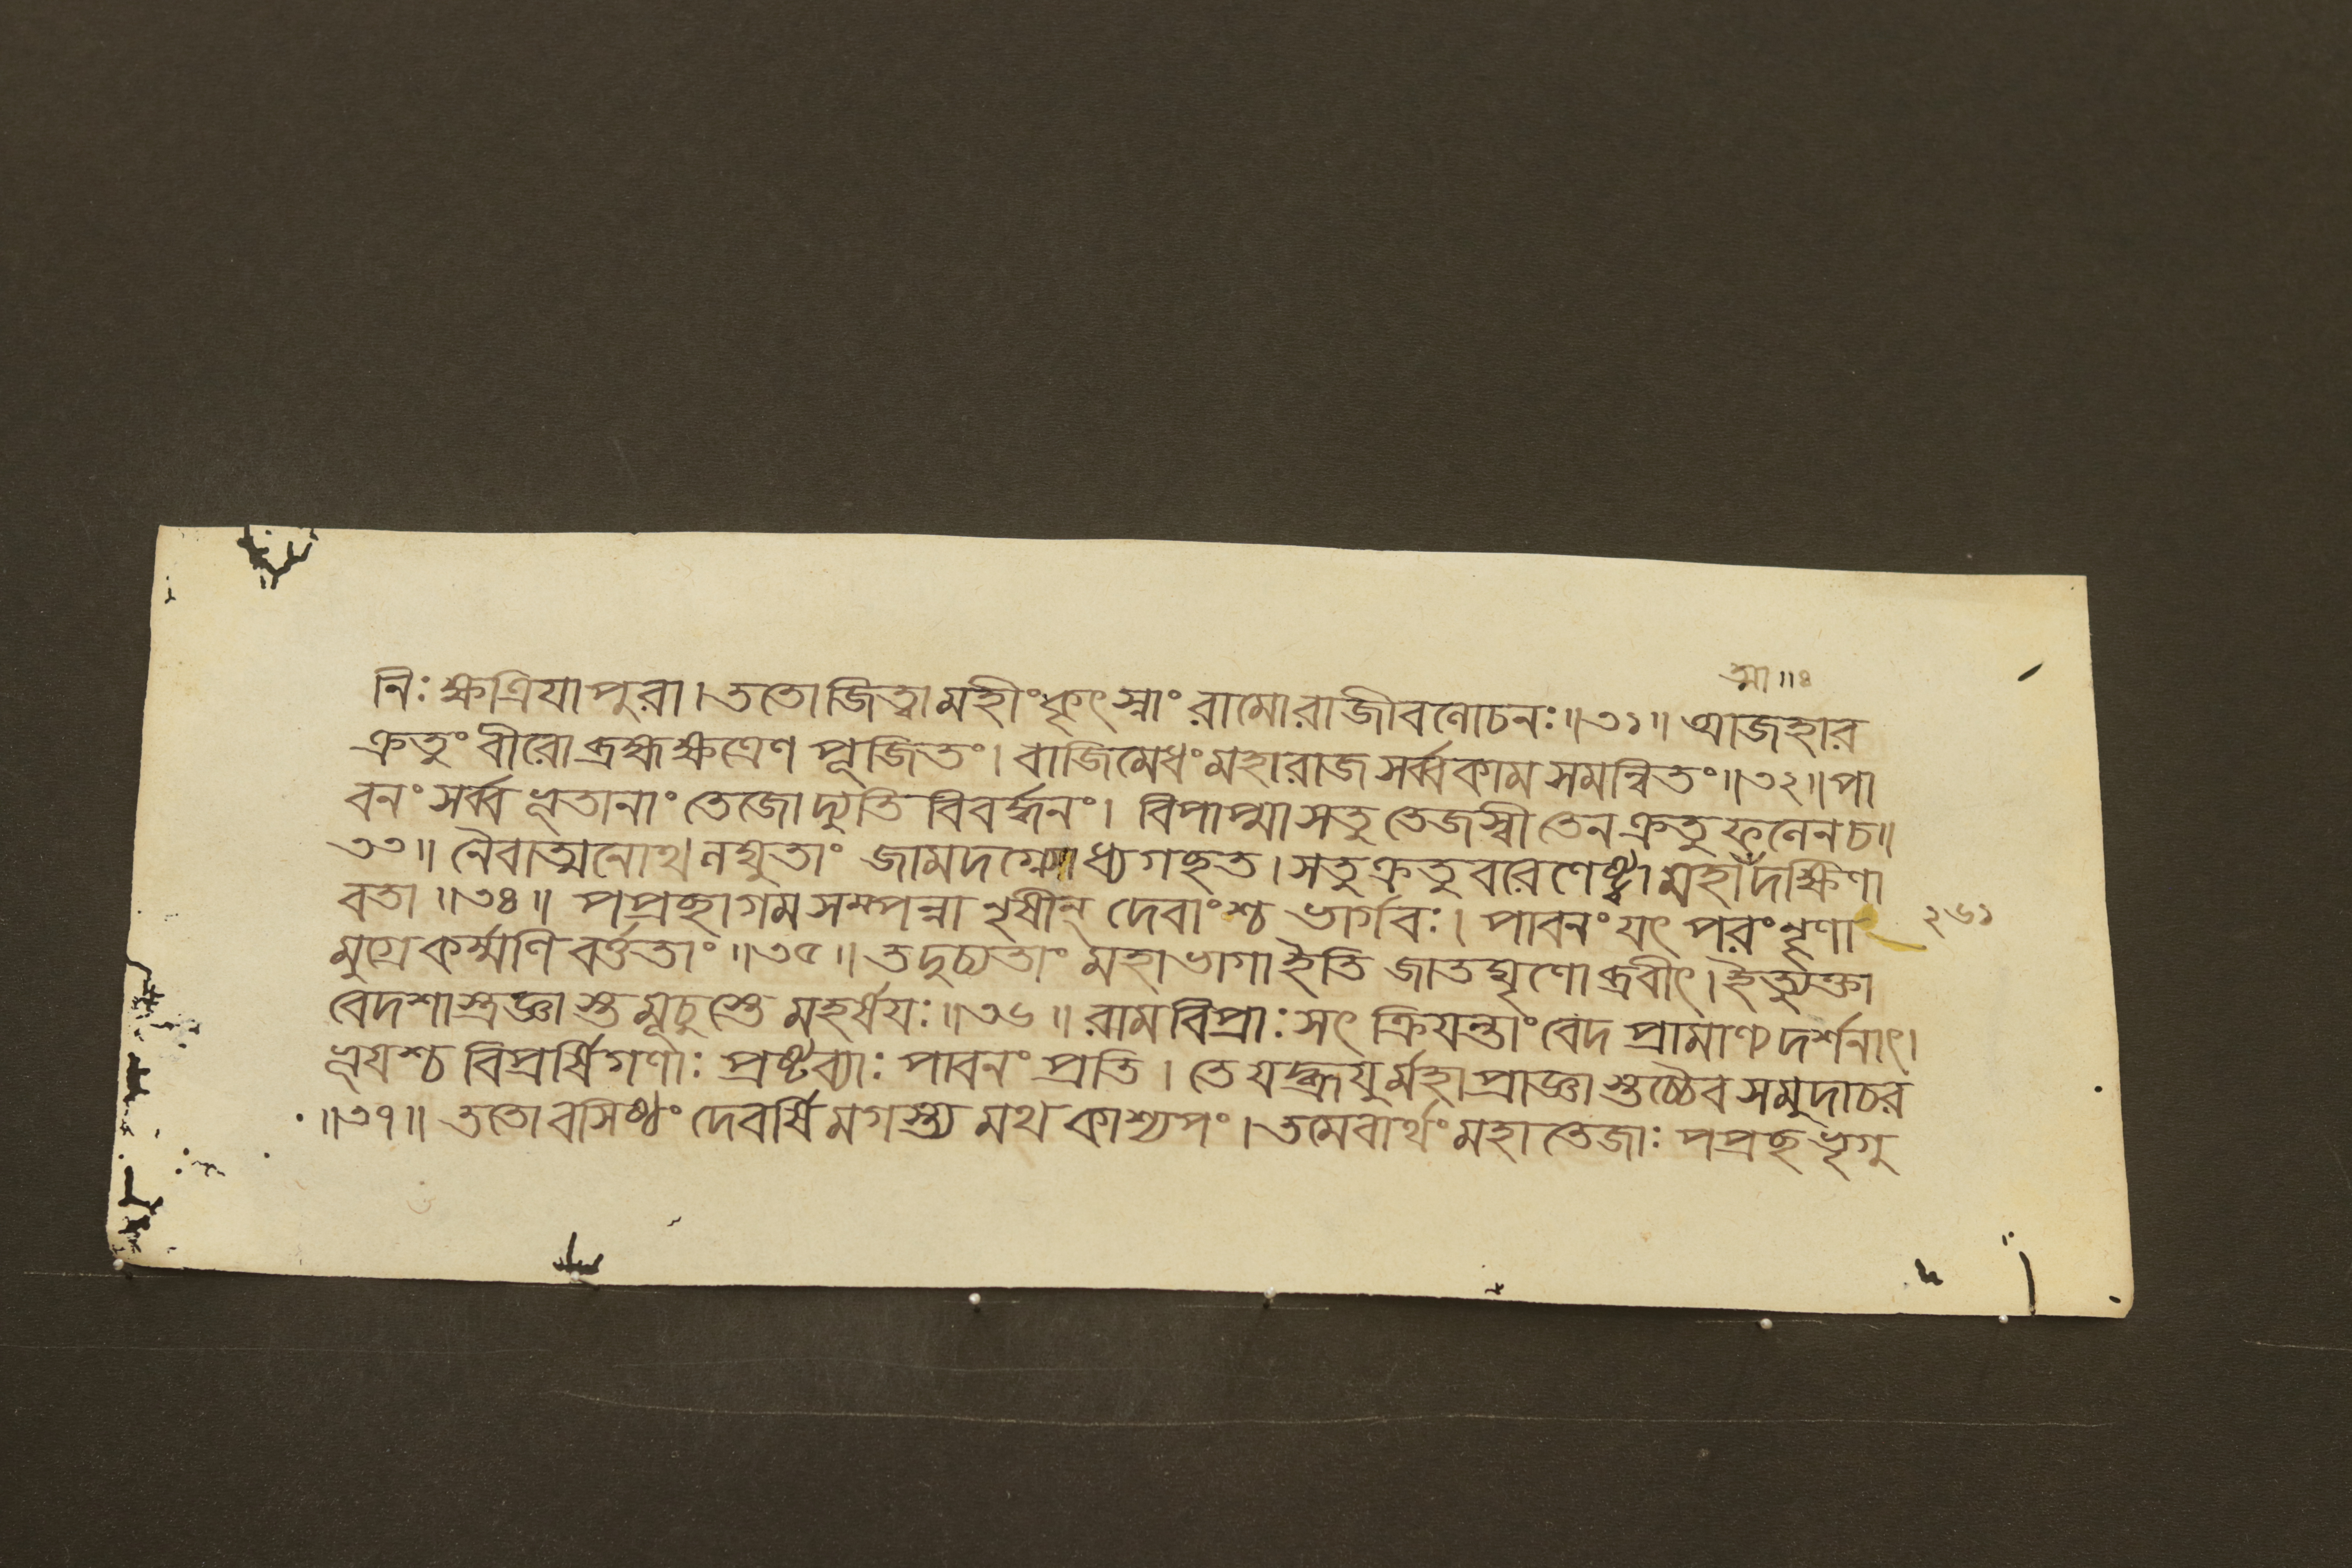 ত্মা॥৪
নিঃ ক্ষত্রিযা পুরা। ততো জিত্বা মহীং কৃৎস্নাং রামো রাজীবলোচনঃ॥৩১॥ আজহার
ক্রতুং বীরো ব্রহ্মক্ষত্রেণ পূজিতং। বাজিমেধং মহারাজ সর্ব্বকাম সমন্বিতং॥৩২॥ পা
বনং সর্ব্ব ভূতানাং তেজো দ্যুতি বিবর্দ্ধনং। বিপাপ্মা সতু তেজস্বী তেন ক্রতু ফলেন চ॥
৩৩॥ নৈবাত্মনোথ লঘুতাং জামদগ্ন্যোধ্যগছত। সতু ক্রতু বরেণেষ্ট্বা মহাঁদক্ষিণা
বতা॥৩৪॥ পপ্রছাগম সম্পন্না নৃষীন্ দেবাংশ্চ ভার্গবঃ। পাবনং যৎ পরং নৄণা
২৬১
মুগ্রে কর্ম্মণি বর্ত্ততাং॥৩৫॥ তদুচ্যতাং মহাভাগা ইতি জাতঘৃণো ব্রবীৎ। ইত্যুক্তা
বেদশাস্ত্রজ্ঞা স্তমূচুস্তে মহর্ষযঃ॥৩৬॥ রাম বিপ্রাঃ সৎ ক্রিযন্তাং বেদ প্রামাণ্য দর্শনাৎ।
ভূযশ্চ বিপ্রর্ষিগণাঃ প্রষ্টব্যাঃ পাবনং প্রতি। তে যদ্ব্রূযুর্মহাপ্রাজ্ঞা স্তচ্চৈব সমুদাচর
॥৩৭॥ ততো বসিষ্ঠং দেবর্ষি মগস্ত্য মথ কাশ্যপং। তমেবার্থং মহাতেজাঃ পপ্রছ ভৃগু